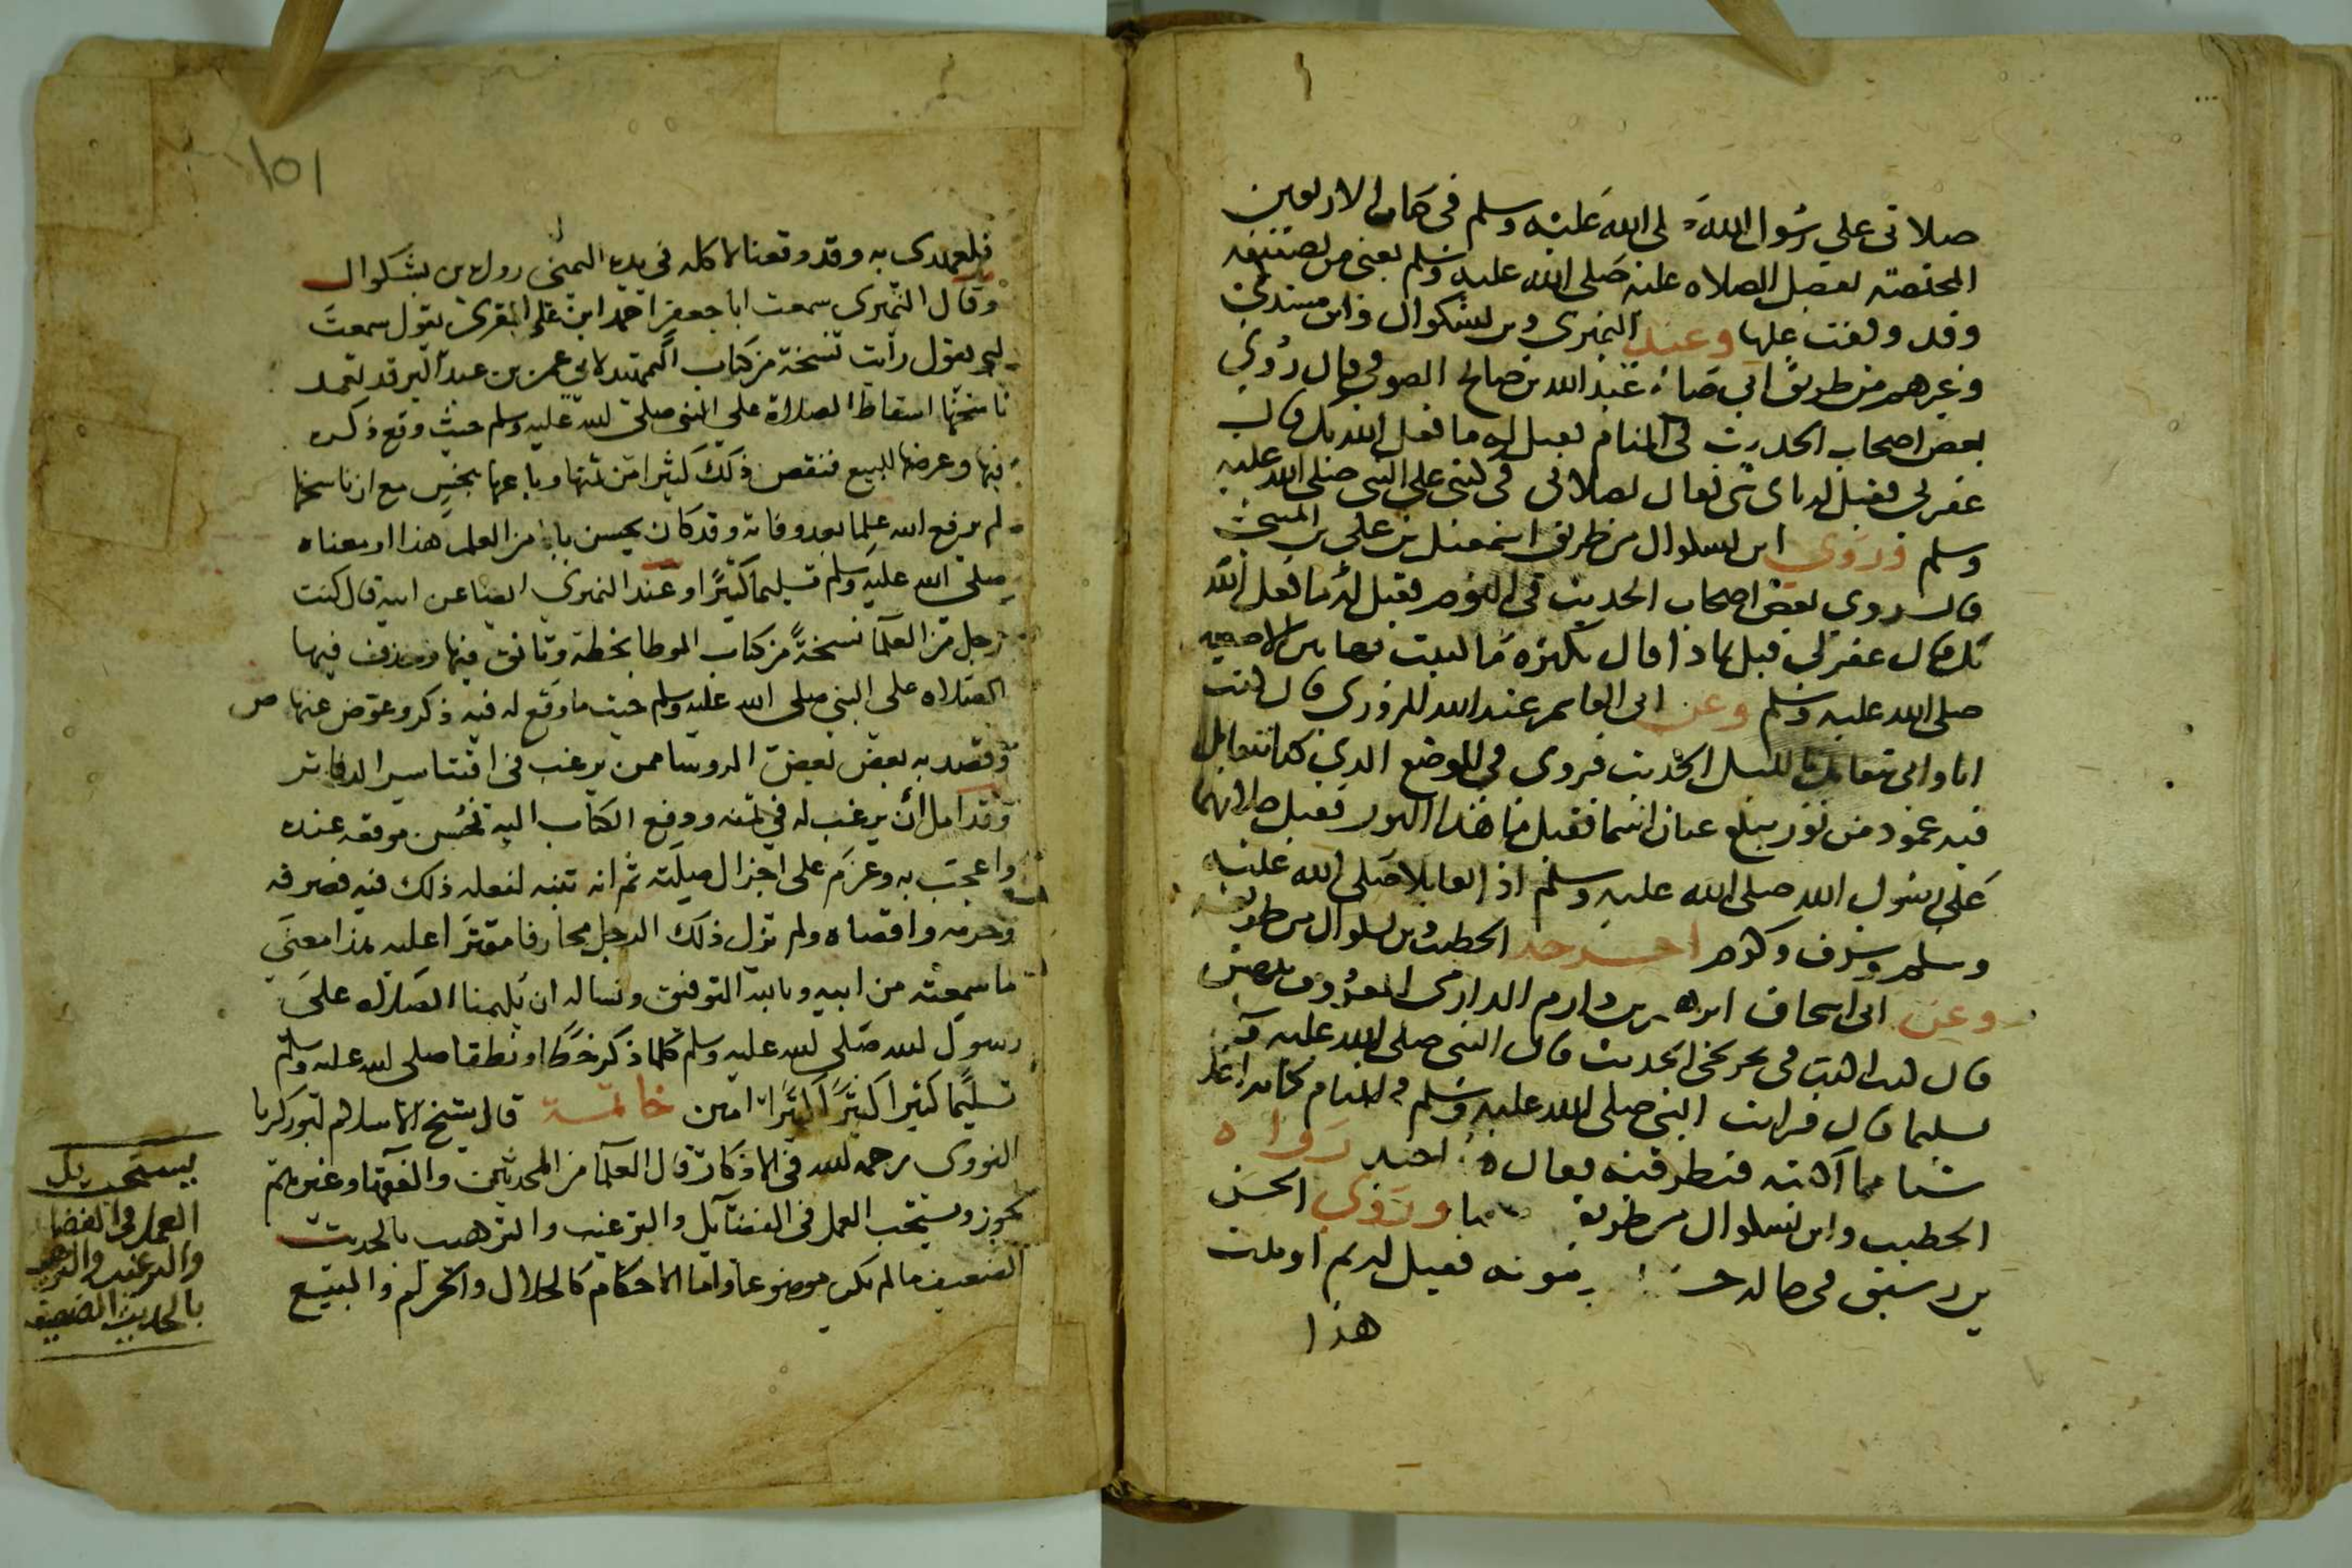 صلاتي علي رسول الله صلى الله عليه وسلم في كتاب الاربعين
المختصة بفضل الصلاه عليه صلى الله عليه وسلم يعني من تصنيفه
وقد وقفت عليها وعند النميري وبن بشكوال وابن مسدي
وغيرهم من طريق ابي صالح عبد الله بن صالح الصوفي قال رؤي
بعض اصحاب الحديث في المنام فقيل له ما فعل الله بك قال
غفر لي فقيل له باي شي فقال بصلاتي في كتبي علي النبي صلى الله عليه
وسلم وروي ابن بشكوال من طريق اسمعيل بن علي بن المثنى
قال روي بعض اصحاب الحديث في النوم فقيل له ما فعل الله
بك قال غفر لي قيل بماذا قال بكثرة ما كتبت بهاتين الاصبعين
صلى الله عليه وسلم وعن ابي القاسم عبد الله المروزي قال كنت
انا وابي نتقابل بالليل الحديث فروي في الموضع الذي كنا نتقابل
فيه عمود من نور يبلغ عنان السما فقيل ما هذا النور فقيل صلاتهما
على رسول الله صلى الله عليه وسلم اذا تقابلا صلى الله عليه
وسلم وشرف وكرم اخرجه الخطيب بن بشكوال من طريقه
وعن ابي اسحاق ابرهيم بن دارم الدارمي المعروف بنهشل
قال كنت اكتب في تخريجي الحديث قال النبي صلى الله عليه
تسليما قال فرايت النبي صلى الله عليه وسلم في المنام كانه اخذ
شيا مما اكتبه فنظر فيه فقال هذا جيد رواه
الخطيب وابن بشكوال من طريقه وروي الحسن
بن رشيق في حالة حسنة بعد موته فقيل له بم اوتيت
هذا
١٥١
وقد وقعنا لاكله في يده اليمنى رواه بن بشكوال
وقال النميري سمعت ابا جعفر احمد ابن علي المقري يقول سمعت
ابي يقول رأيت نسخة من كتاب التمهيد لابي عمر بن عبد البر قد تعمد
ناسخها اسقاط الصلاة على النبي صلى الله عليه وسلم حيث وقع ذكره
فيها وعرضها للبيع فنقص ذلك كثيرا من ثمنها وباعها ببخس مع ان ناسخها
لم يرفع الله علما بعد وفاته وقد كان يحسن بابا من العلم هذا او معناه
صلى الله عليه وسلم تسليما كثيرا وعند النميري ايضا عن ابيه قال كتب
رجل من العلما نسخة من كتاب الموطا بخطه وتانق فيها وحذف فيها
الصلاه على النبي صلى الله عليه وسلم حيث ما وقع له فيه ذكر وعوض عنها ص
وقصد به بعض الروسا ممن يرغب في اقتنا الدفاتر
وقد امل ان يرغب له في ثمنه ودفع الكتاب اليه فحسن موقعه عنده
واعجب به وعزم على اجزال صلته ثم انه تنبه لفعله ذلك فيه فصرفه
وحرمه واقصاه ولم يزل ذلك الرجل محارفا مقترا عليه هذا معنى
ما سمعته من ابيه وبالله التوفيق ونساله ان يلهمنا الصلاه على
رسول الله صلى الله عليه وسلم كلما ذكر خطا ونطقا صلى الله عليه وسلم
تسليما كثيرا كثيرا كثيرا امين خاتمة قال شيخ الاسلام ابو زكريا
النووي رحمه الله في الاذكار قال العلما من المحدثين والفقها وغيرهم
يجوز ويستحب العمل في الفضايل والترغيب والترهيب بالحديث
الضعيف ما لم يكن موضوعا واما الاحكام كالحلال والحرام والبيع
يستحب
العمل في الفضايل
والترغيب والترهيب
بالحديث الضعيف